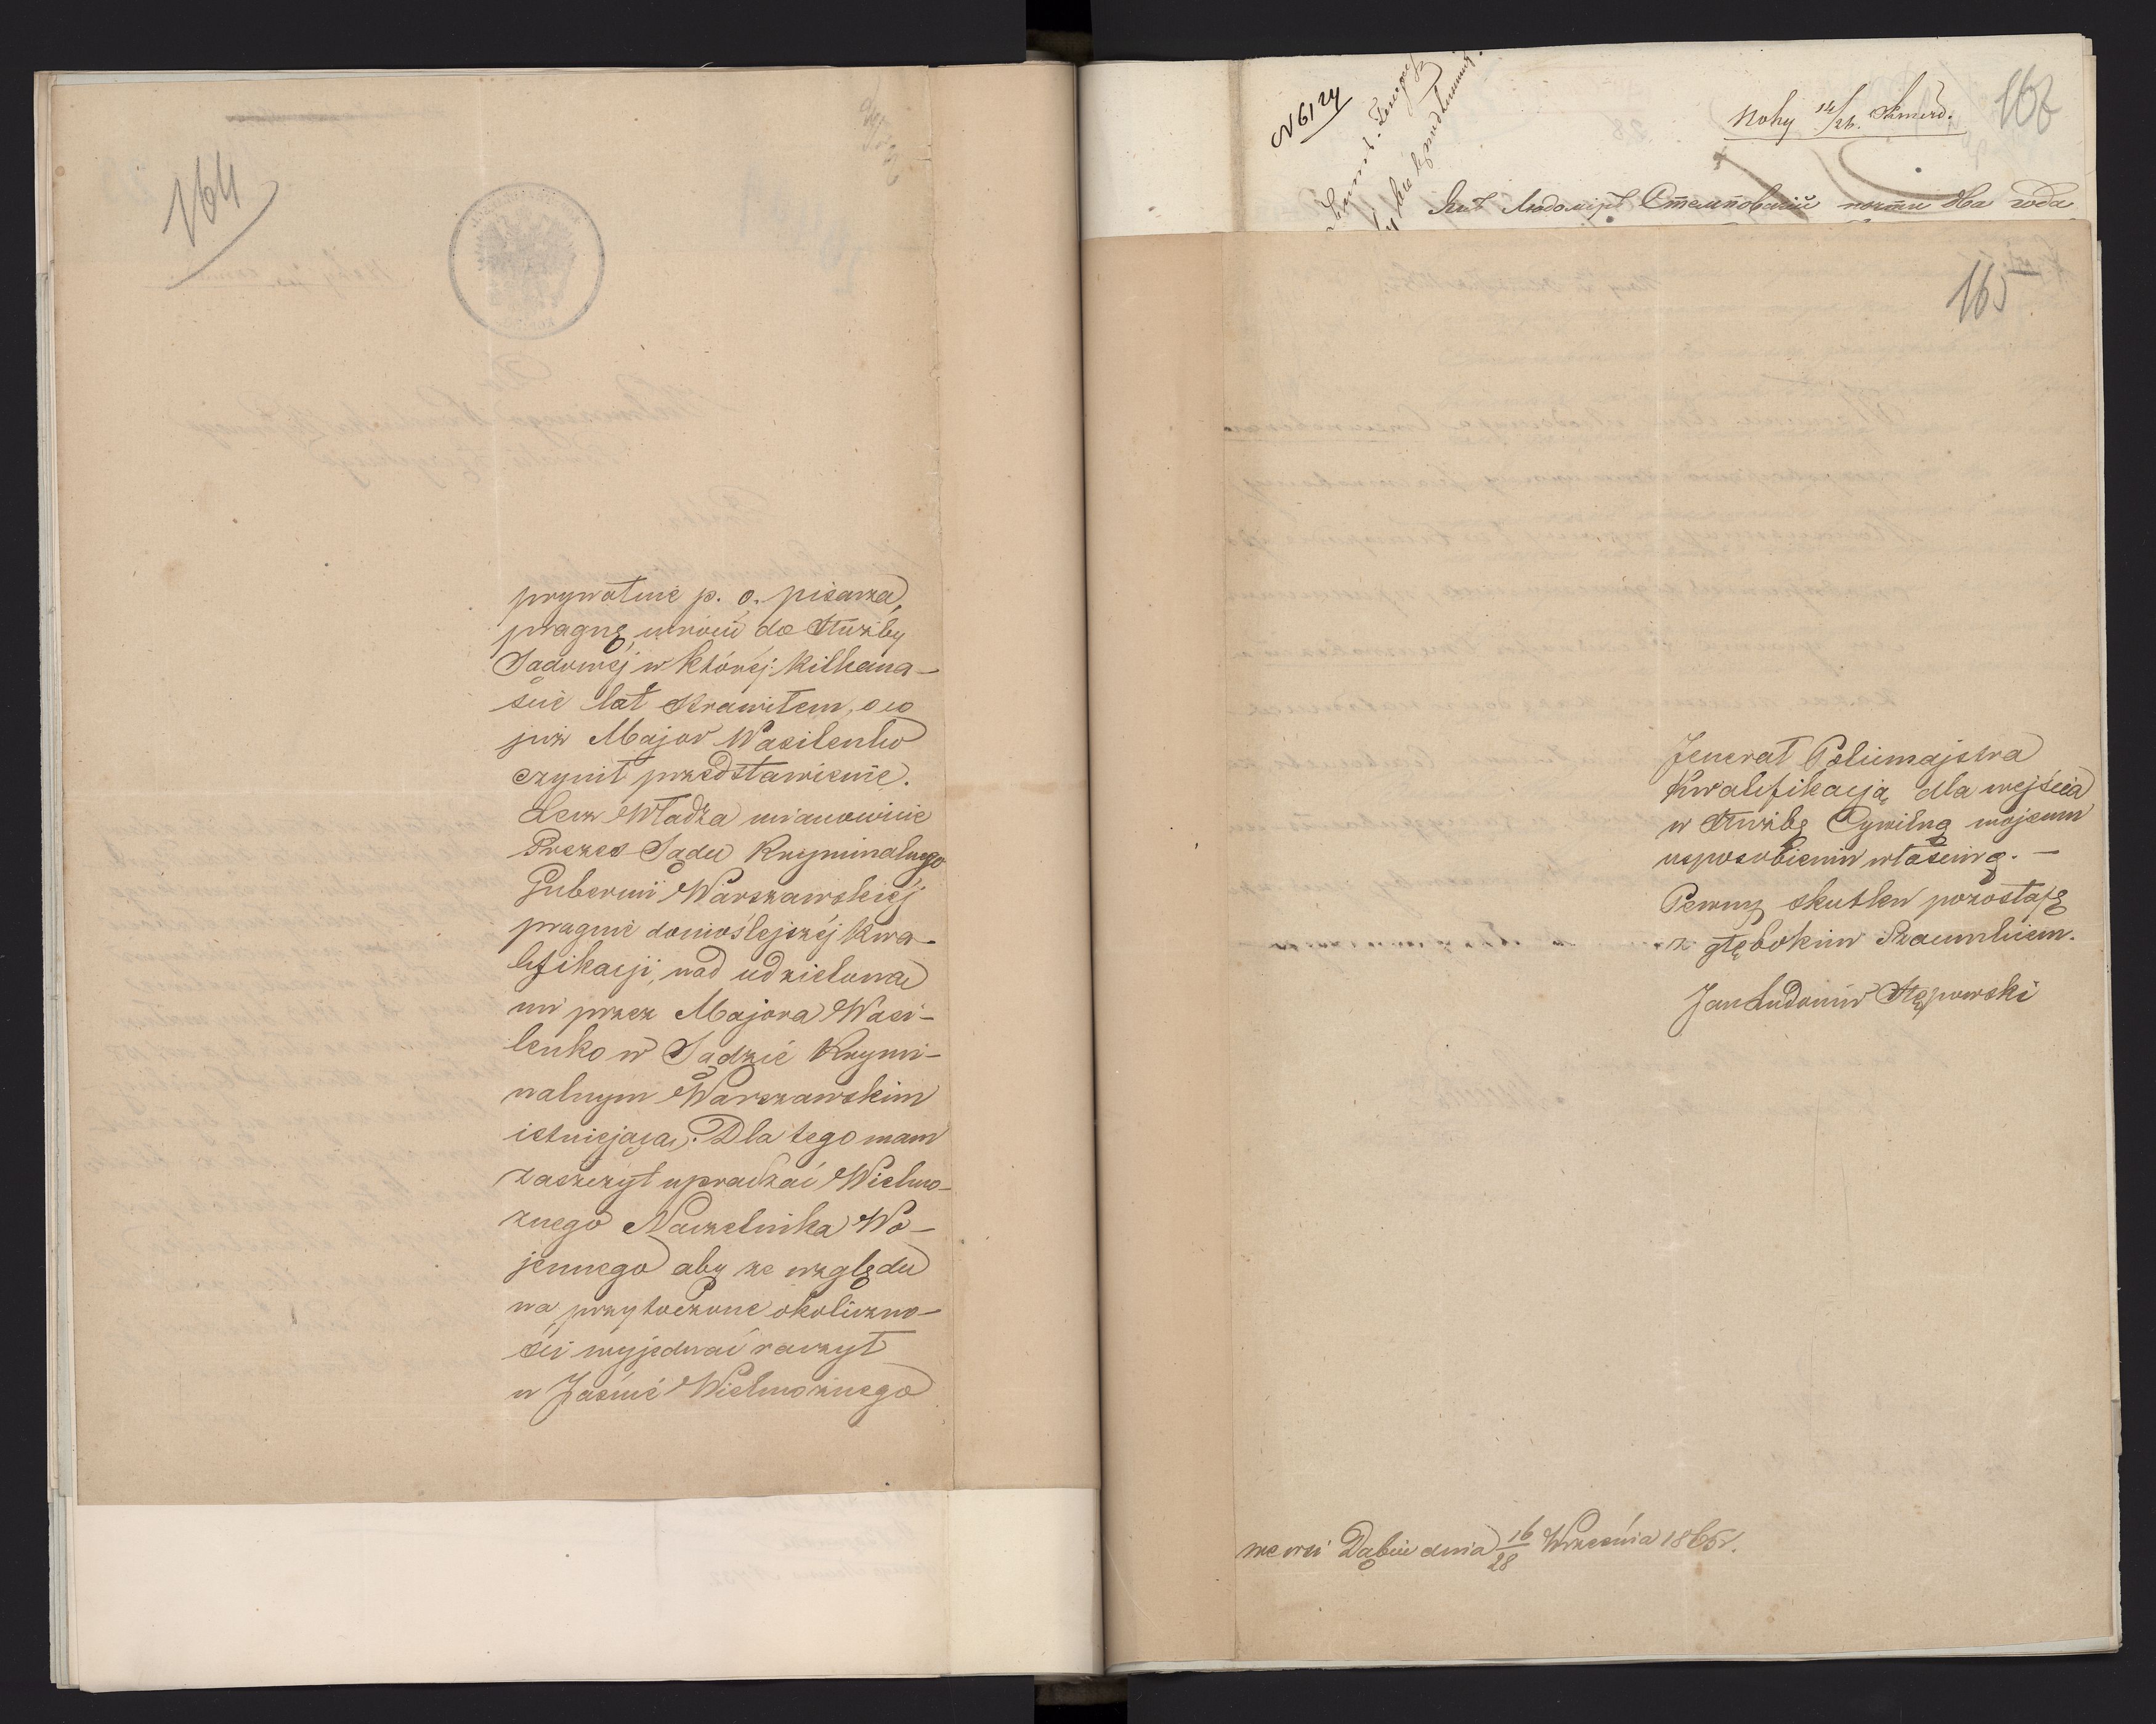 164
prywatnie p. o. pisarza,
pragnę wrócić do służby
Sądowej w której kilkana-
ście lat strawiłem, o co
już Major Wasilenko
czynił przedstawienie.
Lecz Władza mianowicie
Prezes Sądu Kryminalnego
Gubernii Warszawskiej
pragnie donioślejszéj kwa-
lifikacji, nad udzieloną
mi przez Majora Wasi-
lenko w Sądzie Krymi-
nalnym Warszawskim
istniejącą. Dla tego mam
zaszczyt upraszać Wielmo-
żnego Naczelnika Wo-
jennego aby ze względu
na przytoczone okoliczno-
ści wyjednać raczył
u Jaśnie Wielmożnego
N 6124
167
Nohy 14/26.
Янъ Людомiръ Стемповскiй почти два года
165
Jenerał Policmajstra
Kwalifikacją dla wejścia
w służbę Cywilną mojemu
usposobieniu właściwą. —
Pewny skutku pozostaję
z głębokim Szacunkiem.
Jan Ludomir Stępowski
we wsi Dąbiu dnia 16/28 Września 1865 r.